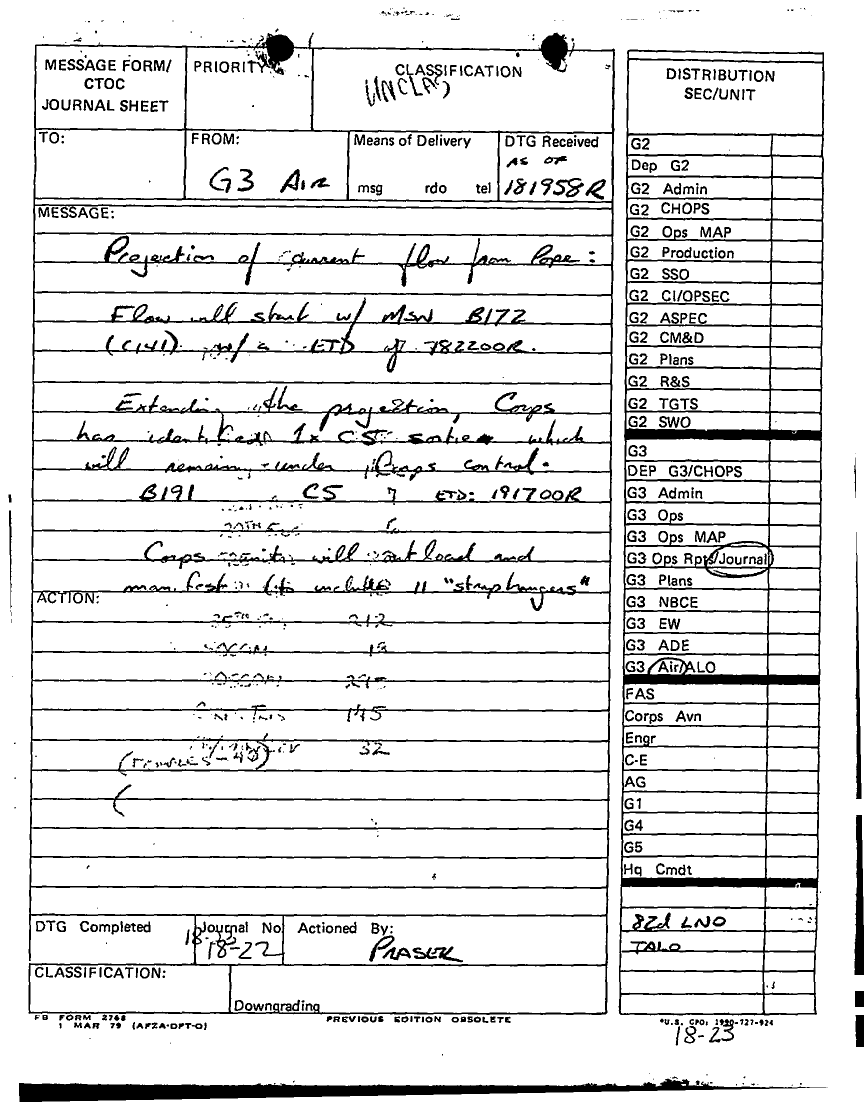 MESSAGE FORM/
CTOC
JOURNAL SHEET
PRIORITY
CLASSIFICATION
UNCLAS
TO:
FROM:
G3 AIR
Means of Delivery
msg rdo tel
DTG Received
AS OF
181958R
MESSAGE:
Projection of current flow from Pope:
Flow will start w/ MSN B172
(C141) w/a ETD of 182200R.
Extending the projection, Corps
has identified 1x C5 sortie which
will remaining under Corps control.
B191 C5 7 ETD: 191700R
Corps monitor will outload and
manifest (to include 11 "straphangers"
ACTION:
212
18
295
145
32
(
DTG Completed
Journal No
18-22
Actioned By:
CLASSIFICATION:
Downgrading
FB FORM 2768
1 MAR 79 (AFZA-DPT-O)
PREVIOUS EDITION OBSOLETE
DISTRIBUTION
SEC/UNIT
G2
Dep G2
G2 Admin
G2 CHOPS
G2 Ops MAP
G2 Production
G2 SSO
G2 CI/OPSEC
G2 ASPEC
G2 CM&D
G2 Plans
G2 R&S
G2 TGTS
G2 SWO
G3
DEP G3/CHOPS
G3 Admin
G3 Ops
G3 Ops MAP
G3 Ops Rpts/Journal
G3 Plans
G3 NBCE
G3 EW
G3 ADE
G3 Air/ALO
FAS
Corps Avn
Engr
C-E
AG
G1
G4
G5
Hq Cmdt
82d LNO
TALO
*U.S. GPO: 1990-727-924
18-23